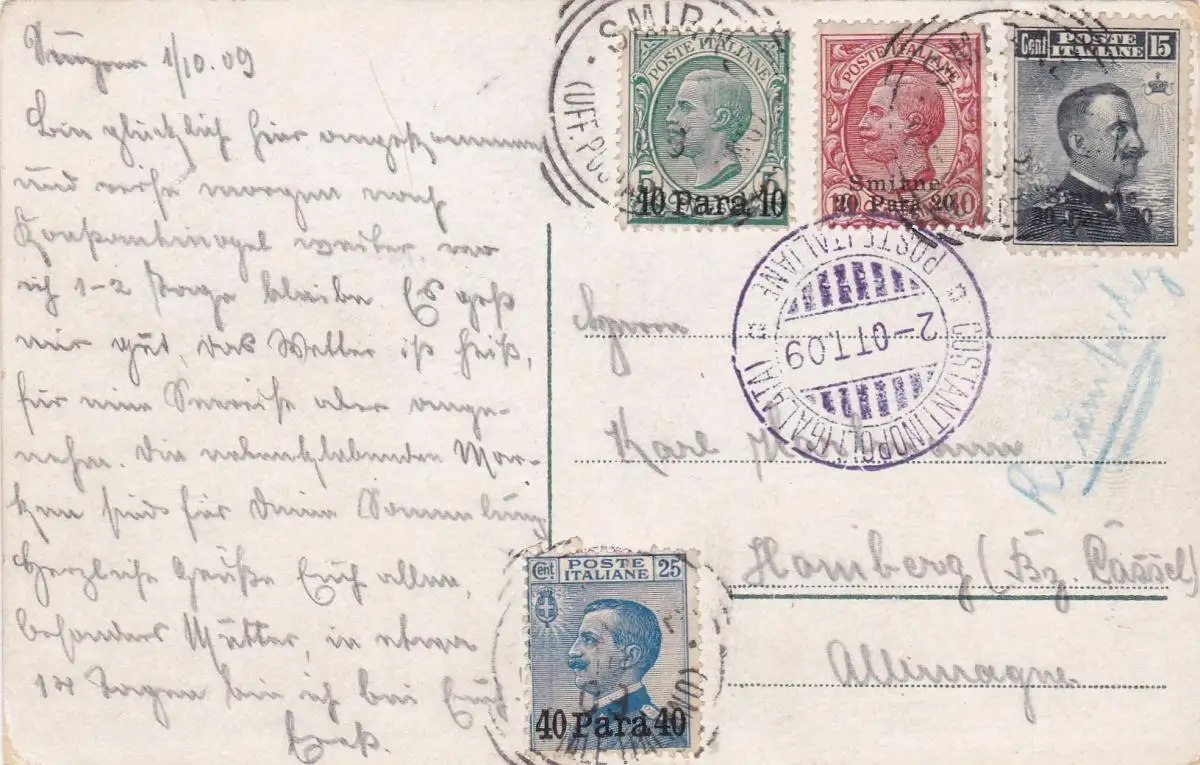 Smyrna 1/10.09
Bin glücklich hier angekommen
und reise morgen nach
Konstantinopel weiter, wo
ich 1-2 Tage bleibe. Es geht
mir gut, das Wetter ist heiß,
für eine Seereise aber ange-
nehm. Die nebenklebenden Mar-
ken sind für Deine Sammlung
Herzliche Grüße Euch allen,
besonders Mutter, in etwa
14 Tagen bin ich bei Euch
SMIRNE
(UFF. POS
POSTE ITALIANE
5 5
10 Para 10
POSTE ITALIANE
Smirne
20 Para 20
Cent POSTE ITALIANE 15
30 Para 30
COSTANTINOPOLI (GALATA)
POSTE ITALIANE
2-OTT.09
Herrn
Karl
Homberg (Bz. Cassel)
Allemagne
Cent POSTE ITALIANE 25
40 Para 40